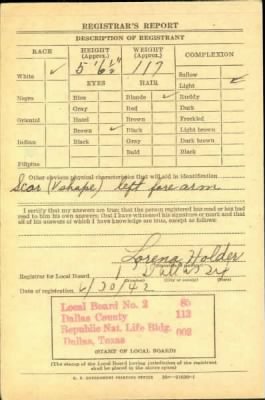 REGISTRAR'S REPORT
DESCRIPTION OF REGISTRANT
RACE HEIGHT (Approx.) WEIGHT (Approx.) COMPLEXION
5' 6½" 117
White ✓ Sallow
EYES HAIR Light ✓
Negro Blue Blonde ✓ Ruddy
Gray Red Dark
Oriental Hazel Brown Freckled
Brown ✓ Black Light brown
Indian Black Gray Dark brown
Bald Black
Filipino
Other obvious physical characteristics that will aid in identification
Scar (V shape) left fore arm
I certify that my answers are true; that the person registered has read or has had
read to him his own answers; that I have witnessed his signature or mark and that
all of his answers of which I have knowledge are true, except as follows:
Lorena Holder
Registrar for Local Board 1 Dallas
Date of registration 6/30/42
Local Board No. 2 85
Dallas County 113
Republic Nat. Life Bldg. 002
Dallas, Texas
(STAMP OF LOCAL BOARD)
(The stamp of the Local Board having jurisdiction of the registrant
shall be placed in the above space)
U. S. GOVERNMENT PRINTING OFFICE 16—21630-1